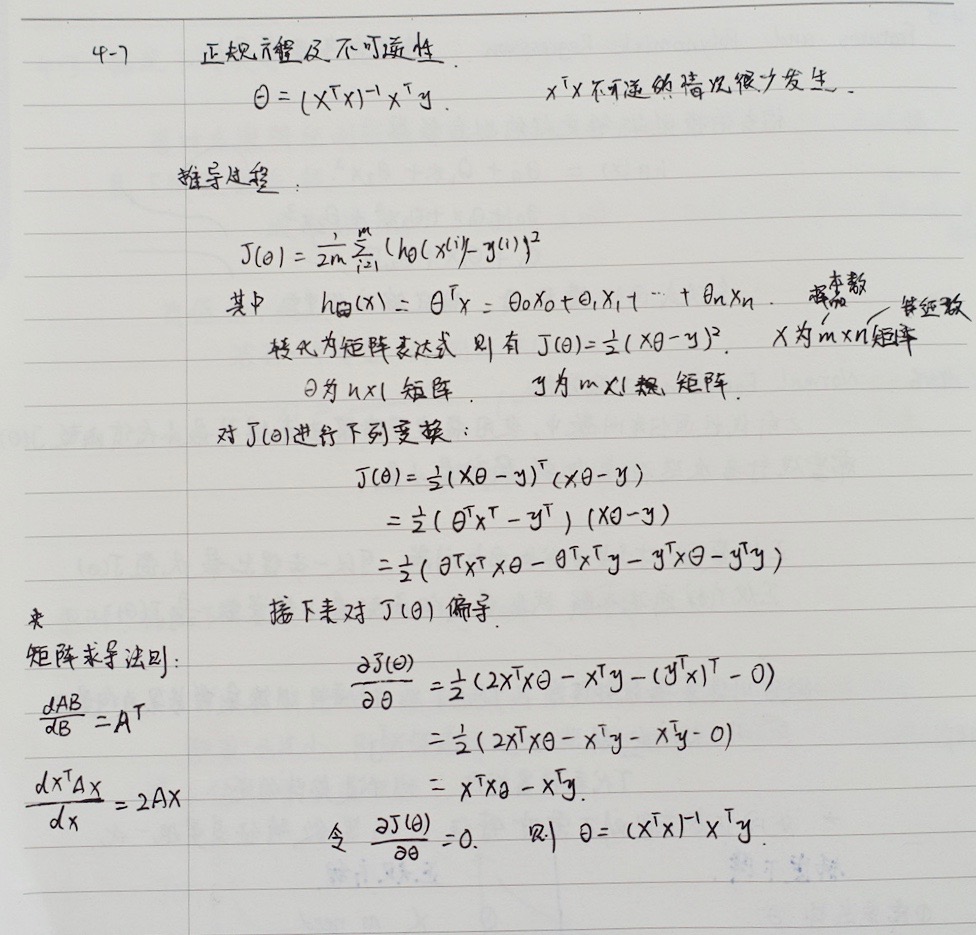 4-7 正规方程及不可逆性.
θ = (XᵀX)⁻¹Xᵀy. XᵀX不可逆的情况很少发生.
推导过程:
J(θ) = 1/2m Σᵢ₌₁ᵐ (hθ(x⁽ⁱ⁾) - y⁽ⁱ⁾)²
样本数 特征数
其中 hθ(x) = θᵀx = θ₀x₀ + θ₁x₁ + ... + θₙxₙ.
转化为矩阵表达式 则有 J(θ) = 1/2 (Xθ - y)². X为m×n矩阵
θ为n×1矩阵. y为m×1矩阵.
对J(θ)进行下列变换:
J(θ) = 1/2 (Xθ - y)ᵀ (Xθ - y)
= 1/2 (θᵀXᵀ - yᵀ) (Xθ - y)
= 1/2 (θᵀXᵀXθ - θᵀXᵀy - yᵀXθ - yᵀy)
接下来对J(θ)偏导.
矩阵求导法则:
dAB/dB = Aᵀ
dXᵀAX/dX = 2AX
∂J(θ)/∂θ = 1/2 (2XᵀXθ - Xᵀy - (yᵀX)ᵀ - 0)
= 1/2 (2XᵀXθ - Xᵀy - Xᵀy - 0)
= XᵀXθ - Xᵀy.
令 ∂J(θ)/∂θ = 0. 则 θ = (XᵀX)⁻¹Xᵀy.